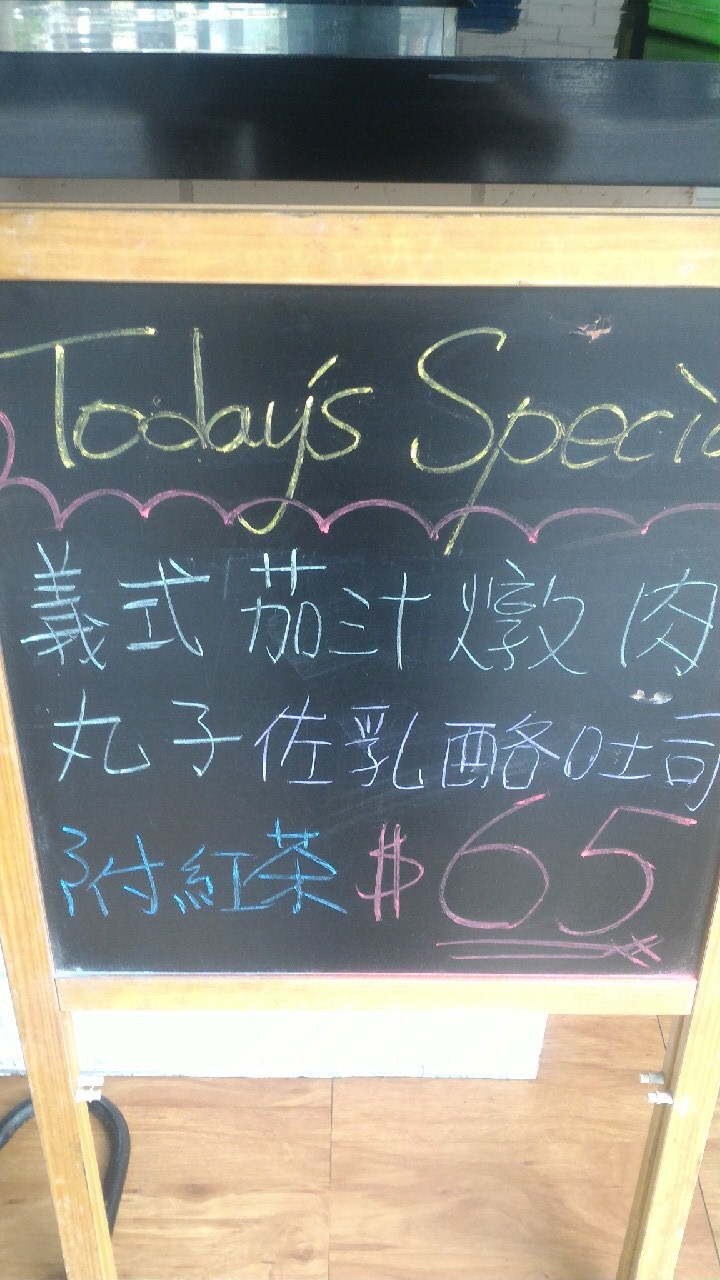 Today's Specia
義式茄汁燉肉
丸子佐乳酪吐司
附紅茶$65